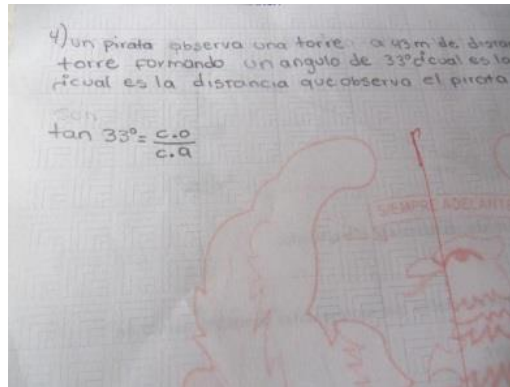 4) un pirata observa una torre a 43 m de
torre formando un angulo de 33° ¿cual es la
¿cual es la distancia que observa el pirata
tan 33° = c.o
c.a
SIEMPRE ADELANTE